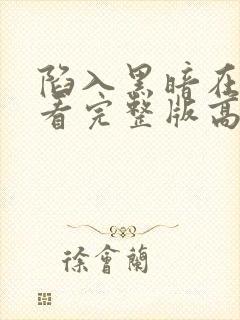 陷入黑暗在
看完整版高
徐會蘭